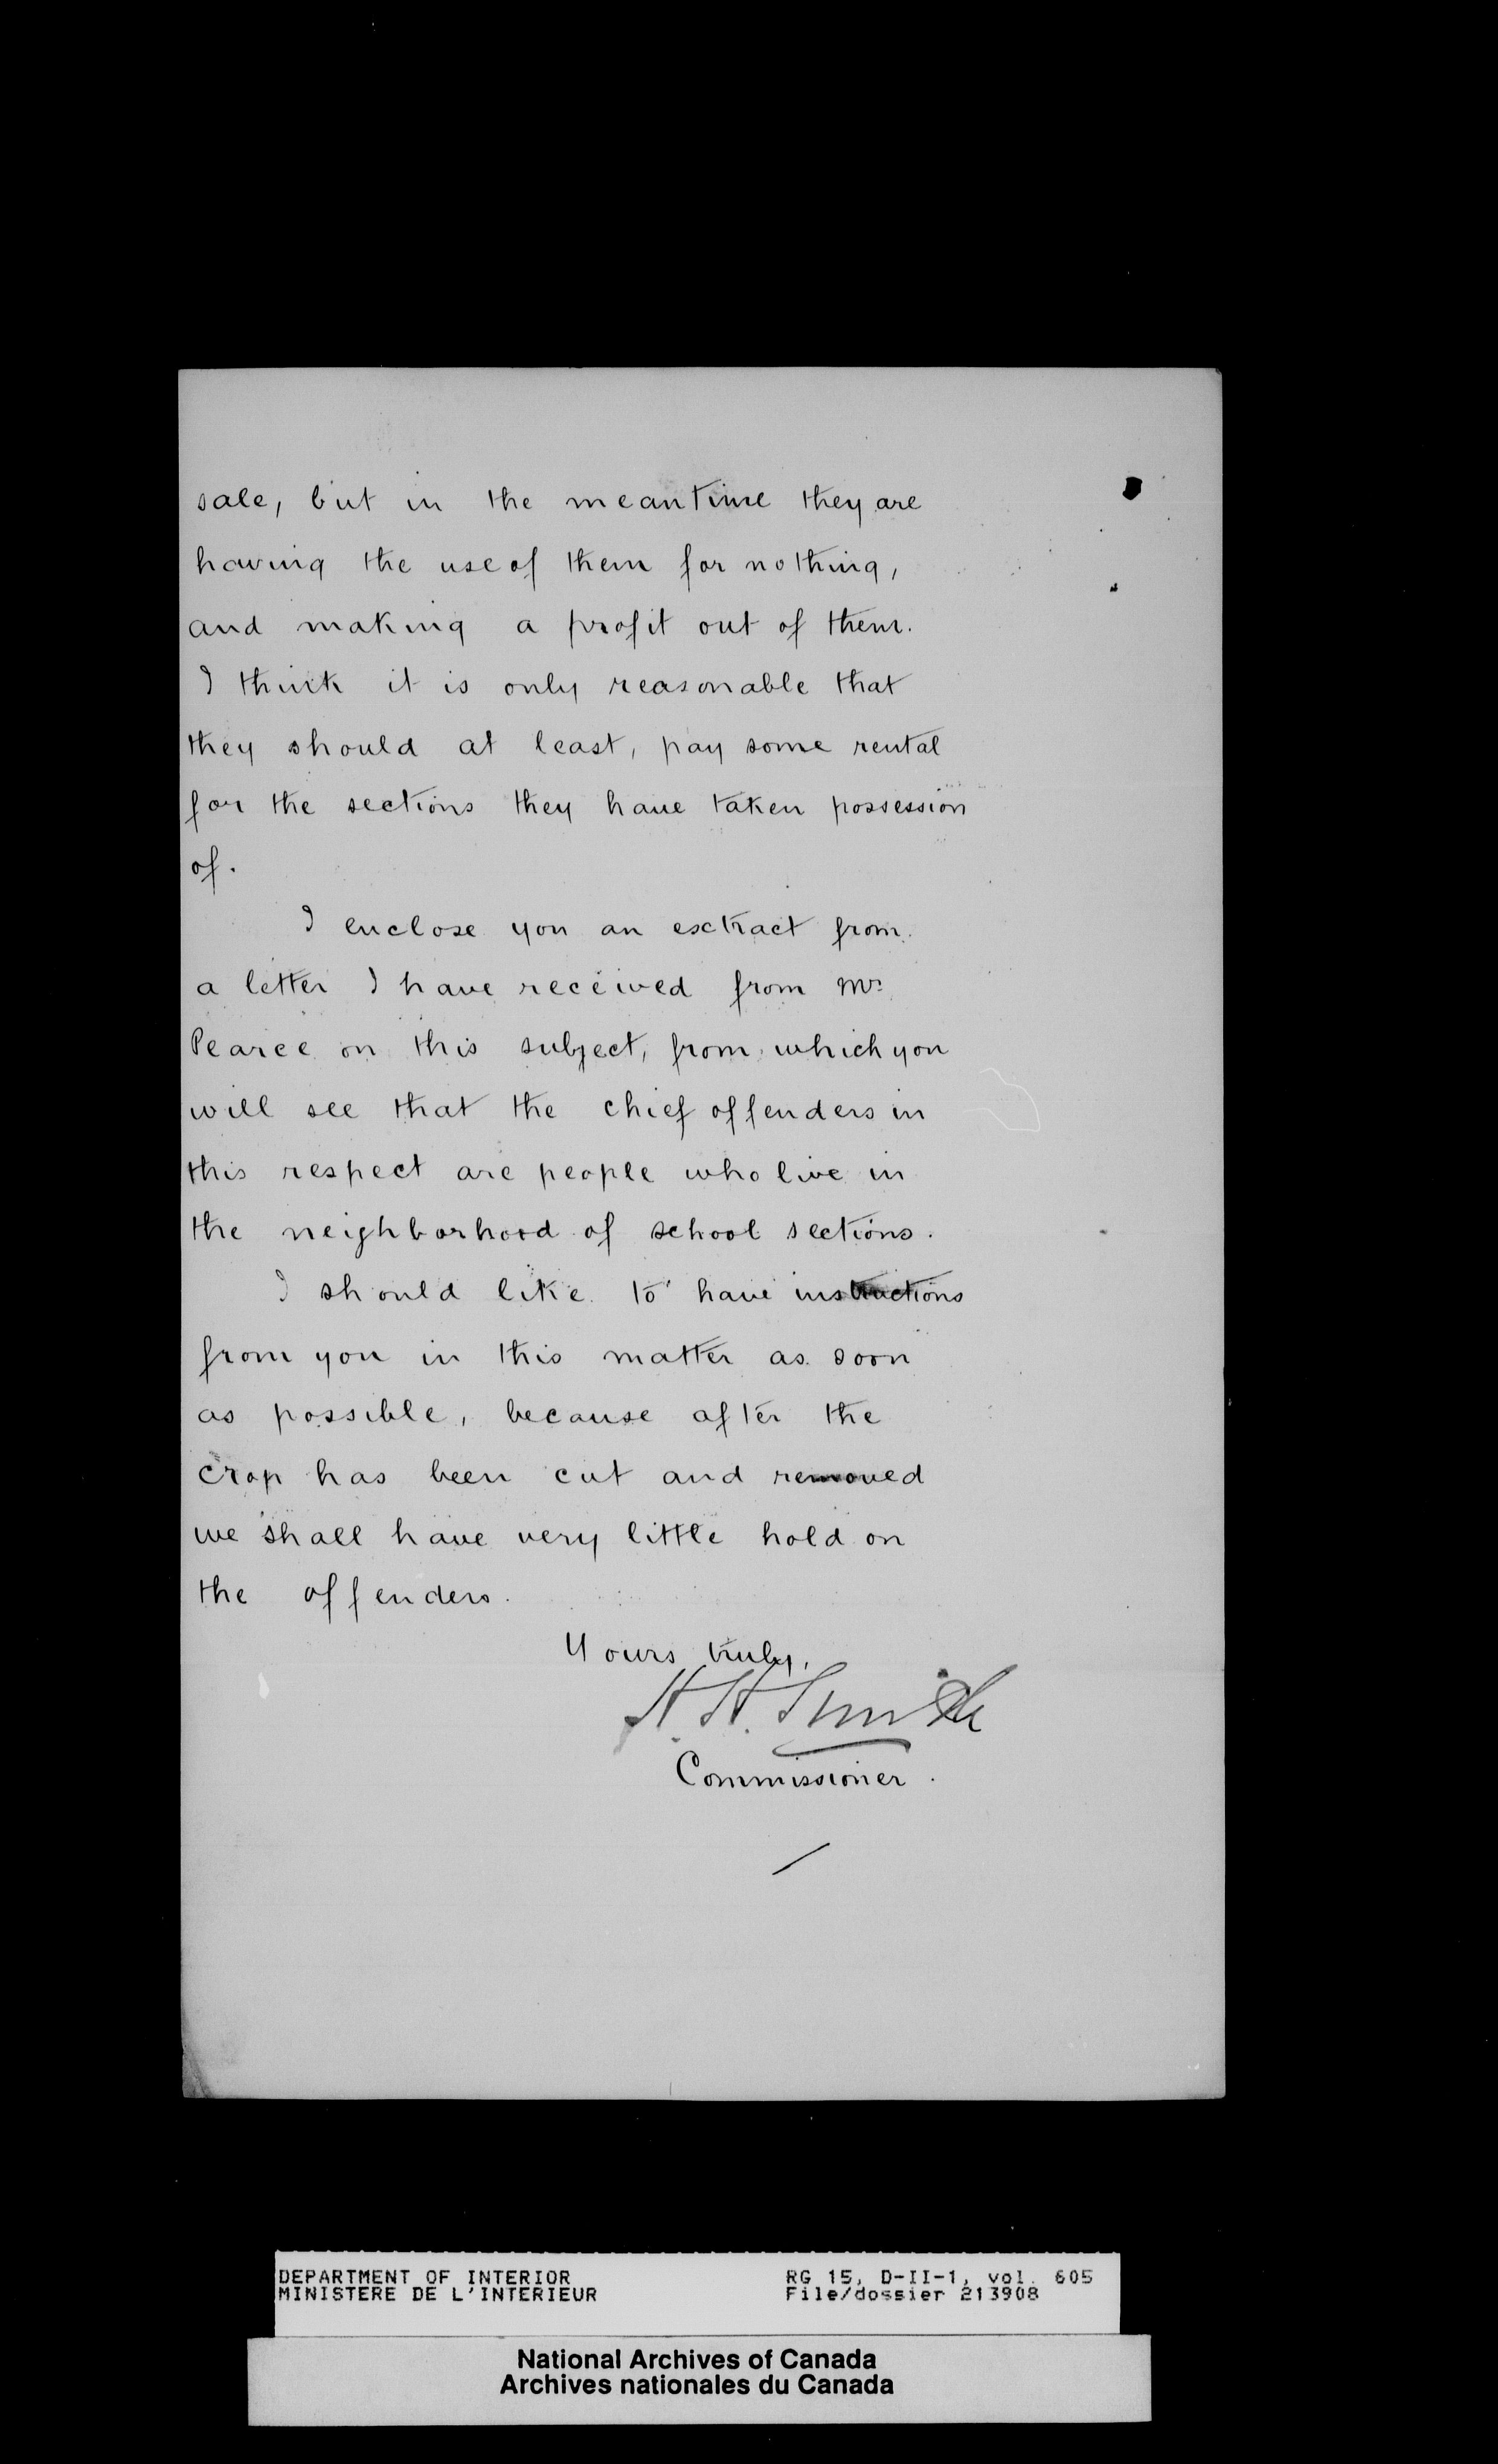 sale, but in the meantime they are
having the use of them for nothing,
and making a profit out of them.
I think it is only reasonable that
they should at least, pay some rental
for the sections they have taken possession
of.
I enclose you an exctract from
a letter I have received from Mr.
Pearce on this subject, from which you
will see that the chief offenders in
this respect are people who live in
the neighborhood of school sections.
I should like to have instructions
from you in this matter as soon
as possible, because after the
crop has been cut and removed
we shall have very little hold on
the offenders.
Yours truly,
H. H. Smith
Commissioner.
DEPARTMENT OF INTERIOR RG 15, D-II-1, vol. 605
MINISTERE DE L'INTERIEUR File/dossier 213908
National Archives of Canada
Archives nationales du Canada